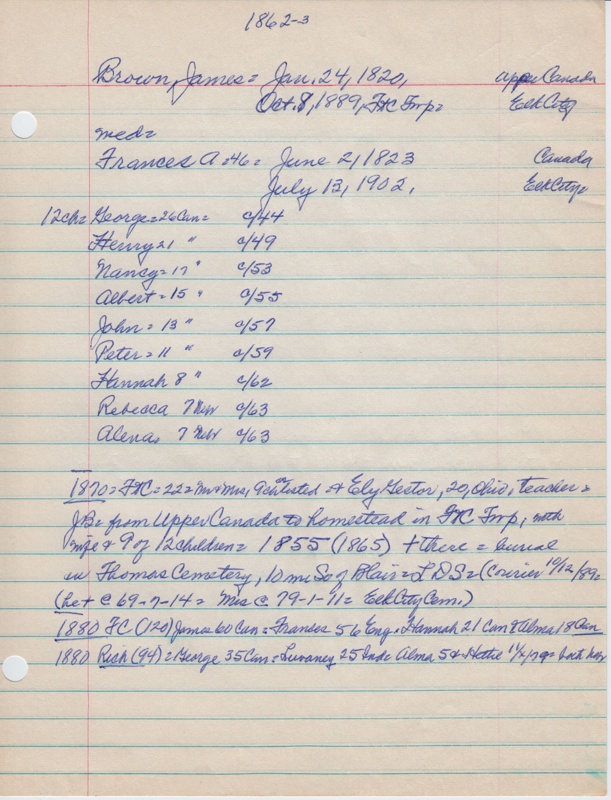 1862-3
Brown, James = Jan. 24, 1820, upper Canada
Oct. 8, 1889, Twp = Elk City
med =
Frances A = 46 = June 2, 1823 Canada
July 13, 1902, Elk City =
12 ch = George = 26 Can = c/44
Henry 21 " c/49
Nancy = 17 " c/53
Albert = 15 " c/55
John = 13 " c/57
Peter = 11 " c/59
Hannah 8 " c/62
Rebecca 7 c/63
7 c/63
1870 = = 222 = Mr & Mrs, 9 ch listed & Ely 20, Ohio, teacher =
JB = from Upper Canada to homestead in Twp, with
wife & 9 of 12 children = 1855 (1865) + there = burial
in Thomas Cemetery, 10 mi So of Blair = L D S = (Courier 10/12/89 =
(he + @ 69-7-14 = Mrs @ 79-1-11 = Elk City Cem.)
1880 FC (120) James 60 Can = Frances 56 Eng. Hannah 21 Can & Alma 18
1880 Rich (94) = George 35 Can = 25 Alma 5 & Hattie